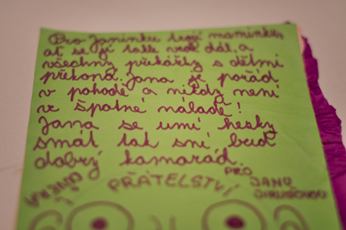 Pro Janinku lepší maminku,
ať se jí tolik vede dál, a
všechny překážky s dětmi
překoná. Jana je pořád
v pohodě a nikdy není
ve špatné náladě!
Jana se umí hezky
smát tak sní buď
dobrý kamarád.
PŘÁTELSTVÍ
PRO
JANU